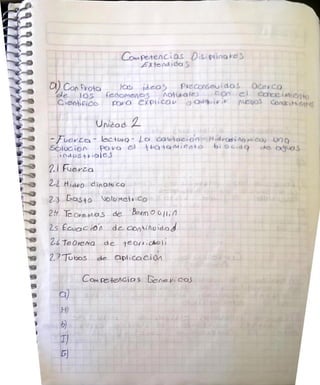 Competencias Disiplinares
Extendidas
a) Confronta las ideas preconseuidas acerca
de los fenomenos naturales con el conocimiento
Cientifico para explicar y adquirir nuevos conocimientos
Unidad 2
-Fuerza-lectura-La cavitación Hidrodinamica, una
Solucion para el tratamiento biocida de aguas
industriales
2.1 Fuerza
2.2 Hidro dinamica
2.3 Gasto Volumetrico
2.4 Teoremas de
2.5 Ecuación de continuidad
2.6 Teorema de
2.7 Tubos de aplicación
Competencias Genericas
a)
b)
I)